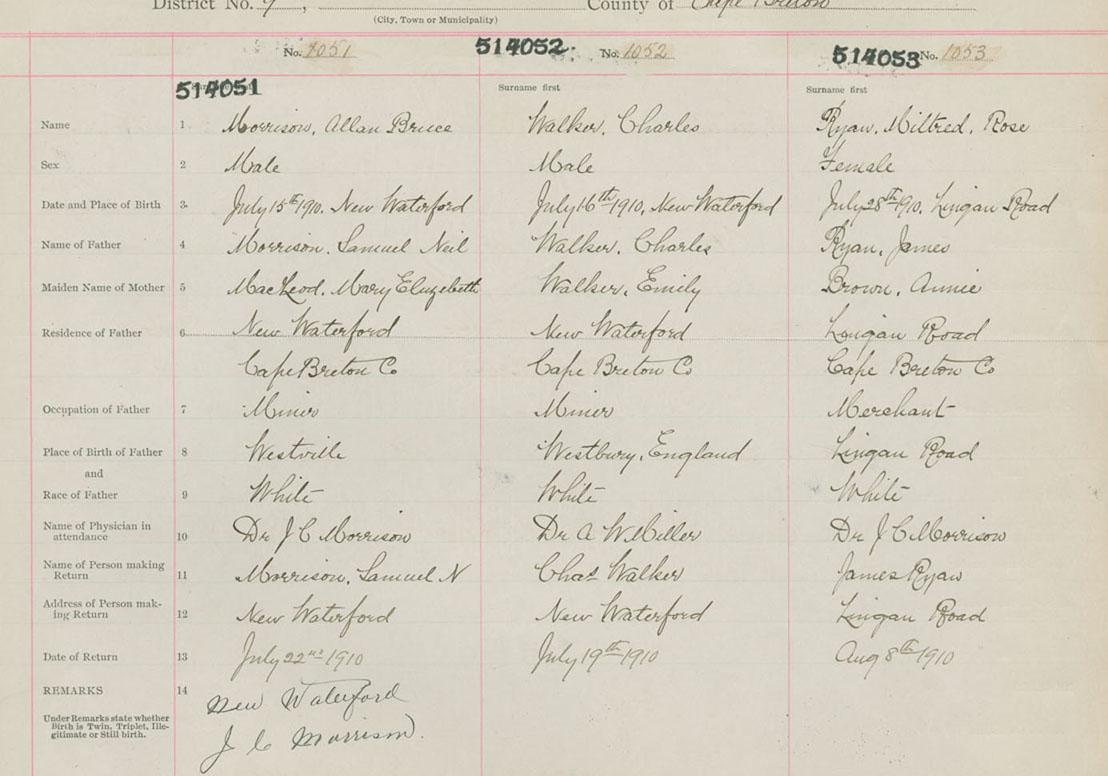 District No. 9, County of Cape Breton
(City, Town or Municipality)
No. 1051 514052. No. 1052 514053 No. 1053
514051 Surname first Surname first Surname first
Name 1 Morrison, Allan Bruce Walker, Charles Ryan, Mildred, Rose
Sex 2 Male Male Female
Date and Place of Birth 3 July 15th 1910. New Waterford July 16th 1910, New Waterford July 28th 1910, Lingan Road
Name of Father 4 Morrison, Samuel Neil Walker, Charles Ryan, James
Maiden Name of Mother 5 MacLeod, Mary Elizabeth Walker, Emily Brown, Annie
Residence of Father 6 New Waterford New Waterford Lingan Road
Cape Breton Co Cape Breton Co Cape Breton Co
Occupation of Father 7 Miner Miner Merchant
Place of Birth of Father 8 Westville Westbury, England Lingan Road
and
Race of Father 9 White White White
Name of Physician in
attendance 10 Dr J C Morrison Dr A W Miller Dr J C Morrison
Name of Person making
Return 11 Morrison, Samuel N Chas Walker James Ryan
Address of Person mak-
ing Return 12 New Waterford New Waterford Lingan Road
Date of Return 13 July 22nd 1910 July 19th 1910 Aug 8th 1910
REMARKS 14 New Waterford
Under Remarks state whether
Birth is Twin, Triplet, Ille-
gitimate or Still birth. J C Morrison.